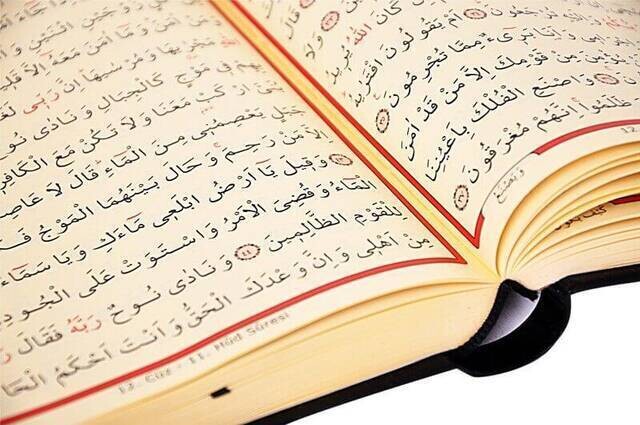 تُرْجَعُونَ
كَانَ اللّٰهُ يُرِيدُ
اَمْ يَقُولُونَ افْتَرٰيهُ
وَاَنَا بَرِٓيءٌ مِمَّا تُجْرِمُونَ
يُؤْمِنَ مِنْ قَوْمِكَ اِلَّا مَنْ قَدْ اٰمَنَ
وَاصْنَعِ الْفُلْكَ بِاَعْيُنِنَا
ظَلَمُوا اِنَّهُمْ مُغْرَقُونَ ٣٧
وَيَصْنَعُ
وَمَنْ اٰمَنَ وَمَٓا اٰمَنَ مَعَهُٓ اِلَّا
مَجْرٰيهَا وَمُرْسٰيهَا اِنَّ رَبِّي
فِي مَوْجٍ كَالْجِبَالِ وَنَادٰى
ارْكَبْ مَعَنَا وَلَا تَكُنْ مَعَ الْكَافِرِ
جَبَلٍ يَعْصِمُنِي مِنَ الْمَٓاءِ قَالَ لَا عَاصِ
اِلَّا مَنْ رَحِمَ وَحَالَ بَيْنَهُمَا الْمَوْجُ فَ
وَقِيلَ يَٓا اَرْضُ ابْلَعِي مَٓاءَكِ وَيَا سَمَٓاءُ
الْمَٓاءُ وَقُضِيَ الْاَمْرُ وَاسْتَوَتْ عَلَى الْجُودِ
لِلْقَوْمِ الظَّالِمِينَ ٤٤ وَنَادٰى نُوحٌ رَبَّهُ فَقَالَ
مِنْ اَهْلِي وَاِنَّ وَعْدَكَ الْحَقُّ وَاَنْتَ اَحْكَمُ الْحَا
12. Cüz - 11. Hûd Sûresi